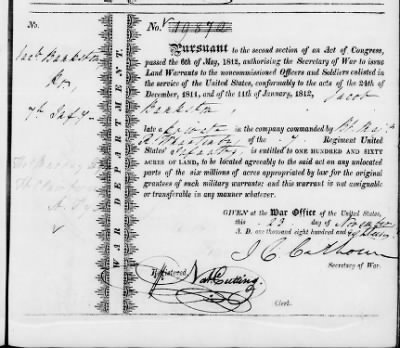 No.
No. 19872
Jacob Bankston
7th Infy
PURSUANT to the second section of an Act of Congress,
passed the 6th of May, 1812, authorising the Secretary of War to issue
Land Warrants to the noncommissioned Officers and Soldiers enlisted in
the service of the United States, conformably to the acts of the 24th of
December, 1811, and of the 11th of January, 1812, Jacob
Bankston,
late a private in the company commanded by
of the 7 Regiment United
States' Infantry
is entitled to ONE HUNDRED AND SIXTY
ACRES OF LAND, to be located agreeably to the said act on any unlocated
parts of the six millions of acres appropriated by law for the original
grantees of such military warrants; and this warrant is not assignable
or transferable in any manner whatever.
WAR DEPARTMENT.
GIVEN at the War Office of the United States,
this 23 day of November
A. D. one thousand eight hundred and
J C Calhoun
Secretary of War.
Registered Nat Cutting
Clerk.